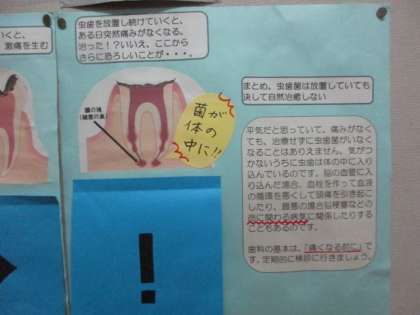 いくと、
激痛を生む
虫歯を放置し続けていくと、
ある日突然痛みがなくなる。
治った！？いいえ、ここから
さらに恐ろしいことが・・・。
膿の塊
菌が
体の
中に!!
!
まとめ、虫歯菌は放置していても
決して自然治癒しない
平気だと思っていて、痛みがなく
ても、治療せずに虫歯菌がいなく
なることはありえません。気がつ
かないうちに虫歯は体の中に入り
込んでいるのです。脳の血管に入
り込んだ場合、血栓を作って血液
の循環を悪くして頭痛を引き起こ
したり、最悪の場合脳梗塞などの
命に関わる病気に関係したりする
こともあるのです。
歯科の基本は、「痛くなる前に」で
す。定期的に検診に行きましょう。